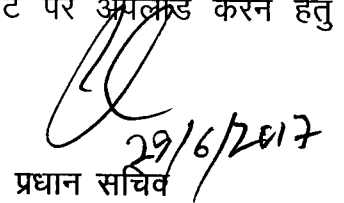 ट पर अपलोड करने हेतु
29/6/2017
प्रधान सचिव